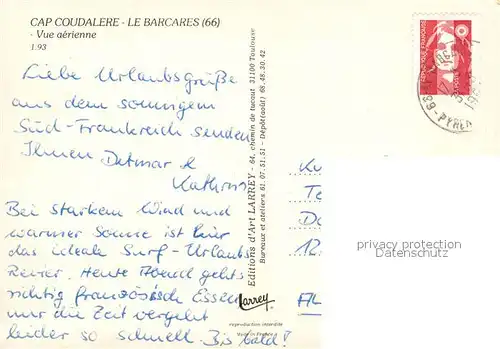 CAP COUDALERE - LE BARCARES (66)
- Vue aérienne
1.93
Liebe Urlaubsgrüße
aus dem sonnigem
Süd-Frankreich senden
Ihnen Detmar &
Kathrin
Bei starkem Wind und
warmer Sonne ist hier
das ideale Surf-Urlaubs
Revier. Heute Abend gehts
richtig französisch Essen
nur die Zeit vergeht
leider so schnell. Bis bald!
Editions d'Art LARREY - 64, chemin de tucaut 31100 Toulouse
Bureaux et ateliers 61.07.51.51 - Dépôt(août) 68.48.30.42
Larrey
reproduction interdite
Made in France
REPUBLIQUE FRANÇAISE
privacy protection
Ansichtskartenhandel.de